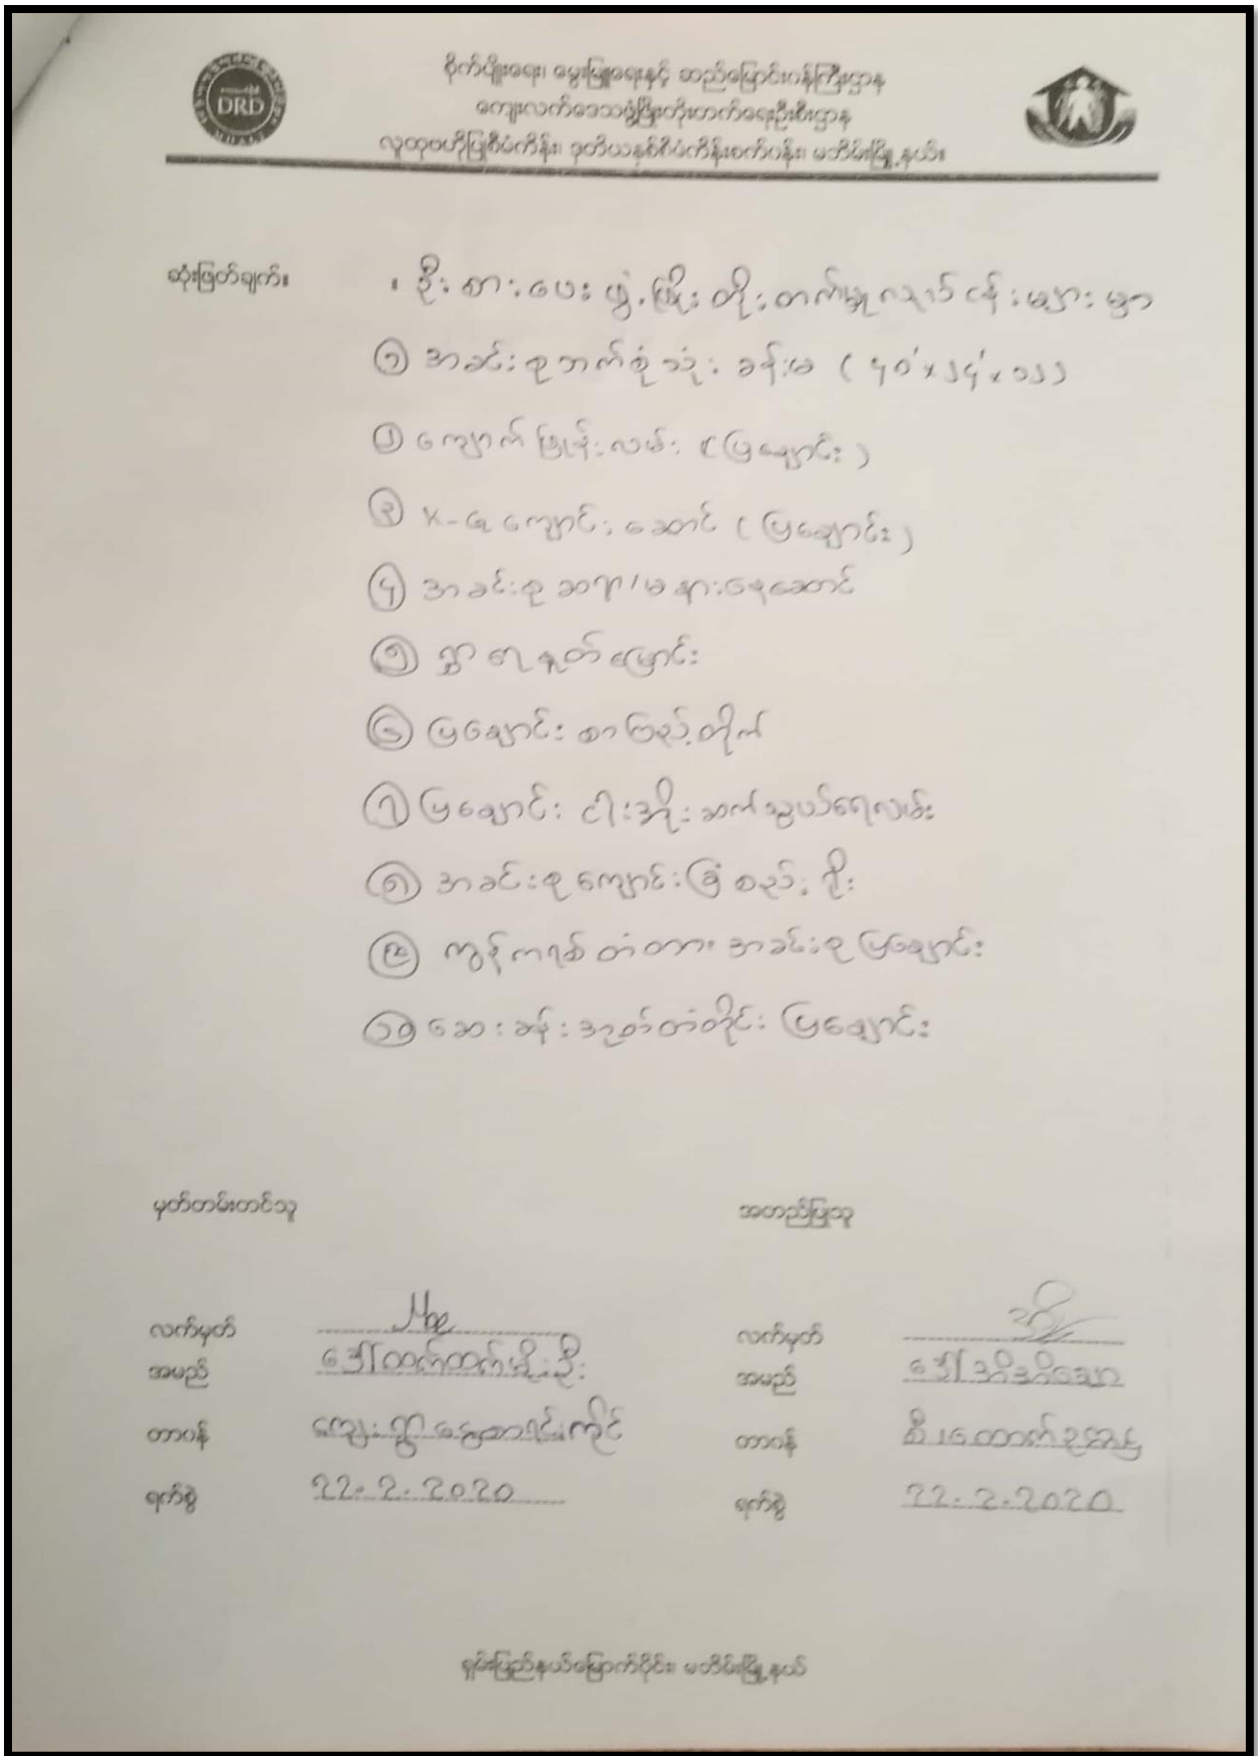 DRD
စိုက်ပျိုးရေး၊ မွေးမြူရေးနှင့် ဆည်မြောင်းဝန်ကြီးဌာန
ကျေးလက်ဒေသဖွံ့ဖြိုးတိုးတက်ရေးဦးစီးဌာန
လူထုဗဟိုပြုစီမံကိန်း၊ ဒုတိယနှစ်စီမံကိန်းစက်ဝန်း၊ မဘိမ်းမြို့နယ်။
ဆုံးဖြတ်ချက်။ ။ ဦးစားပေးဖွံ့ဖြိုးတိုးတက်မှုလုပ်ငန်းများမှာ
၁ အခင်းစုဘက်စုံသုံးခန်းမ (၄၀'x၂၄'x၁၂)
၂ ကျောက်ဖြုန်းလမ်း (မြချောင်း)
၃ K-G ကျောင်းဆောင် (မြချောင်း)
၄ အခင်းစု ဆရာ/မ နားနေဆောင်
၅ ရွာရေနုတ်မြောင်း
၆ မြချောင်း စာကြည့်တိုက်
၇ မြချောင်း ငါးအိုး ဆက်သွယ်ရေလမ်း
၈ အခင်းစုကျောင်းခြံစည်းရိုး
၉ ကွန်ကရစ်တံတား အခင်းစု မြချောင်း
၁၀ ဆေးခန်းအုတ်တံတိုင်း မြချောင်း
မှတ်တမ်းတင်သူ အတည်ပြုသူ
လက်မှတ် Moe လက်မှတ်
အမည် ဒေါ်ထက်ထက်မိုးဦး အမည် ဒေါ်အိအိဇော
တာဝန် ကျေးရွာငွေစာရင်းကိုင် တာဝန် စီ/ထောက်ဥက္ကဋ္ဌ
ရက်စွဲ 22.2.2020 ရက်စွဲ 22.2.2020
ရှမ်းပြည်နယ်မြောက်ပိုင်း၊ မဘိမ်းမြို့နယ်